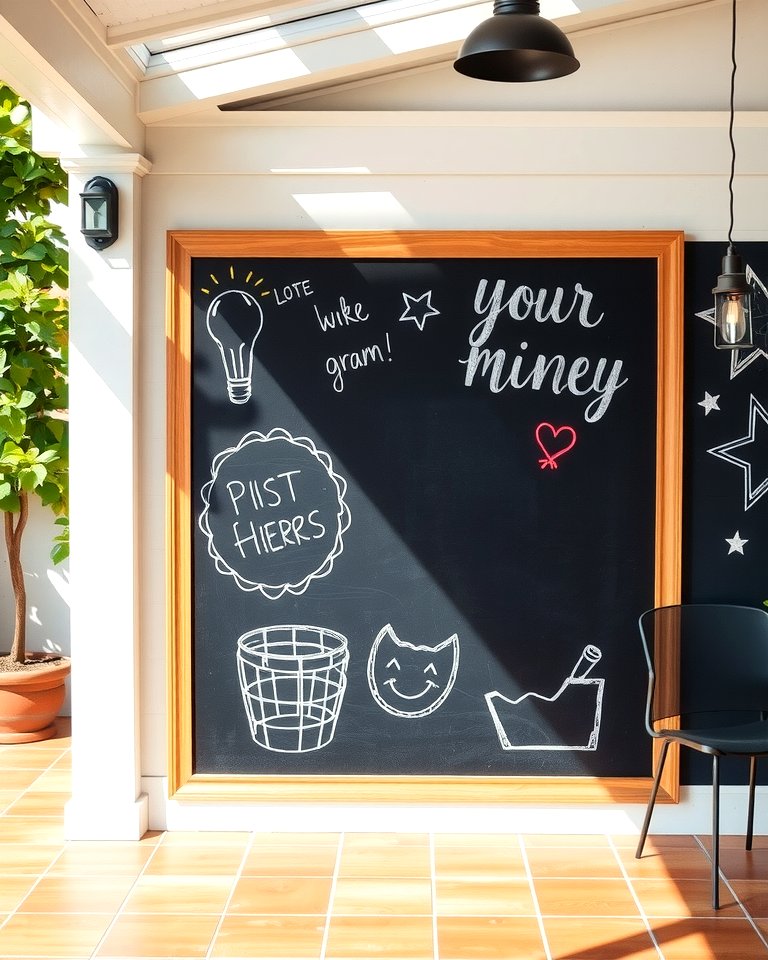 LOTE
wike
gram!
your
miney
PIIST
HIERRS